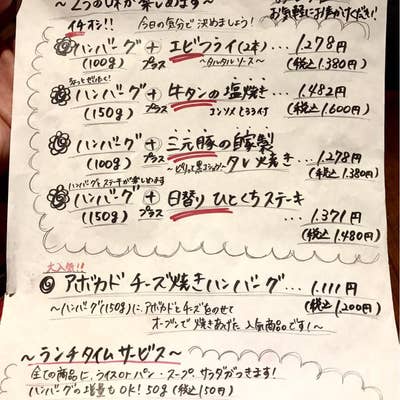 〜2つの味が楽しめます〜
お気軽にお声がけください
イチオシ!! 今日の気分で決めましょう!
ハンバーグ + エビフライ(2本)... 1.278円
(100g) プラス 〜タルタルソース〜 (税込1.380円)
ちょっとぜいたく!
ハンバーグ + 牛タンの塩焼き... 1.482円
(150g) プラス コンソメとろろ付 (税込1.600円)
ハンバーグ + 三元豚の自家製
(100g) プラス 〜ピリッと黒コショウ〜 タレ焼き... 1.278円
(税込1.380円)
ハンバーグとステーキが楽しめます
ハンバーグ + 日替りひとくちステーキ
(150g) プラス ... 1.371円
(税込1.480円)
大人気!!
アボカドチーズ焼きハンバーグ... 1.111円
〜ハンバーグ(150g)に、アボカドとチーズをのせて (税込1.200円)
オーブンで焼きあげた人気商品です!〜
〜ランチタイムサービス〜
全ての商品に、ライスorパン・スープ、サラダがつきます!
ハンバーグの増量もOK! 50g(税込150円)